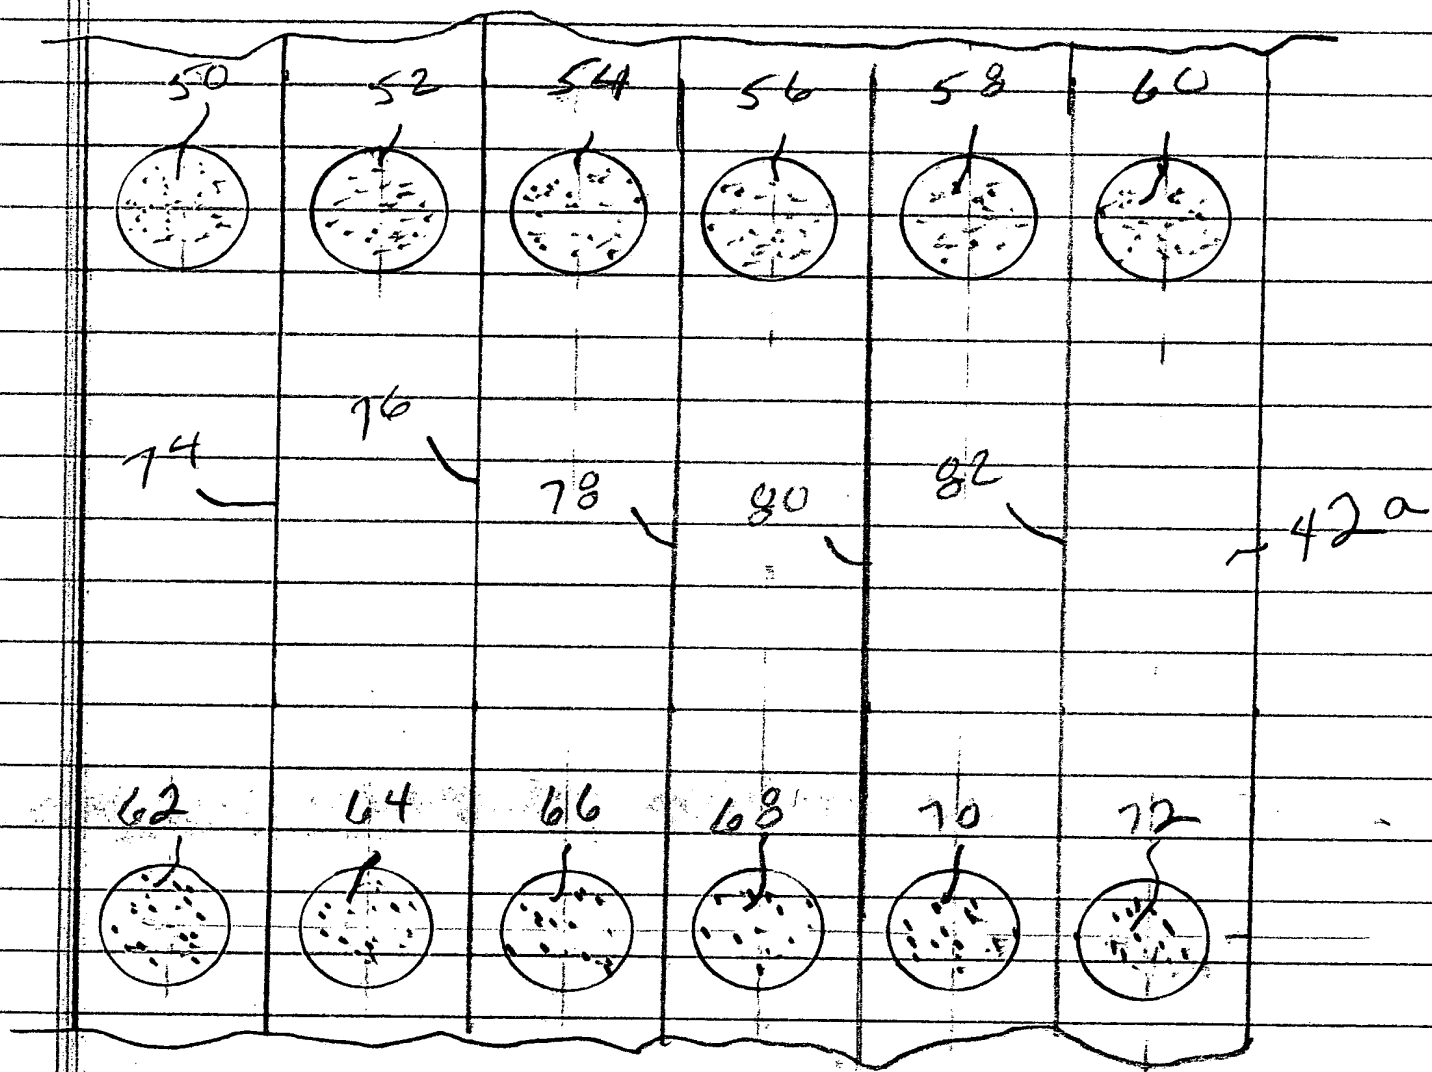 50 52 54 56 58 60
76
74
78 80 82
42a
62 64 66 68 70 72